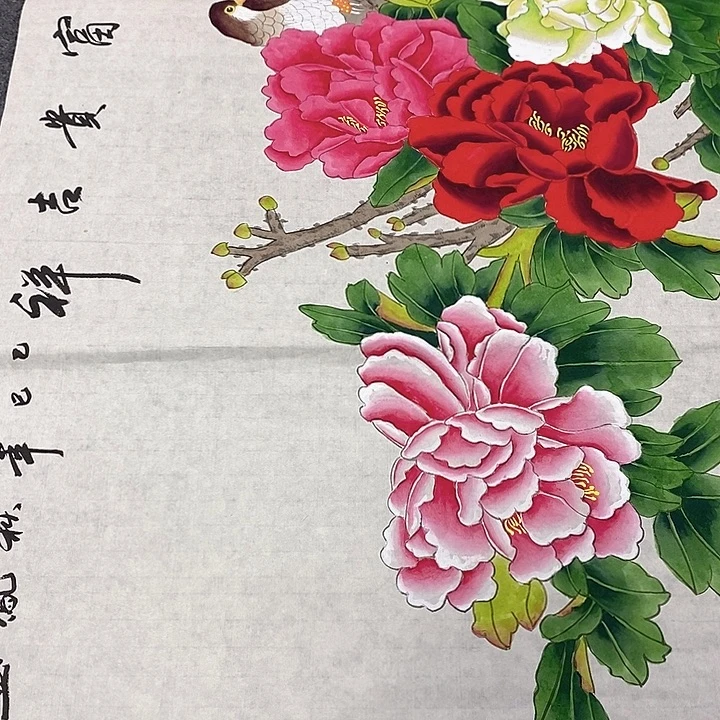 富貴吉祥
己巳年秋